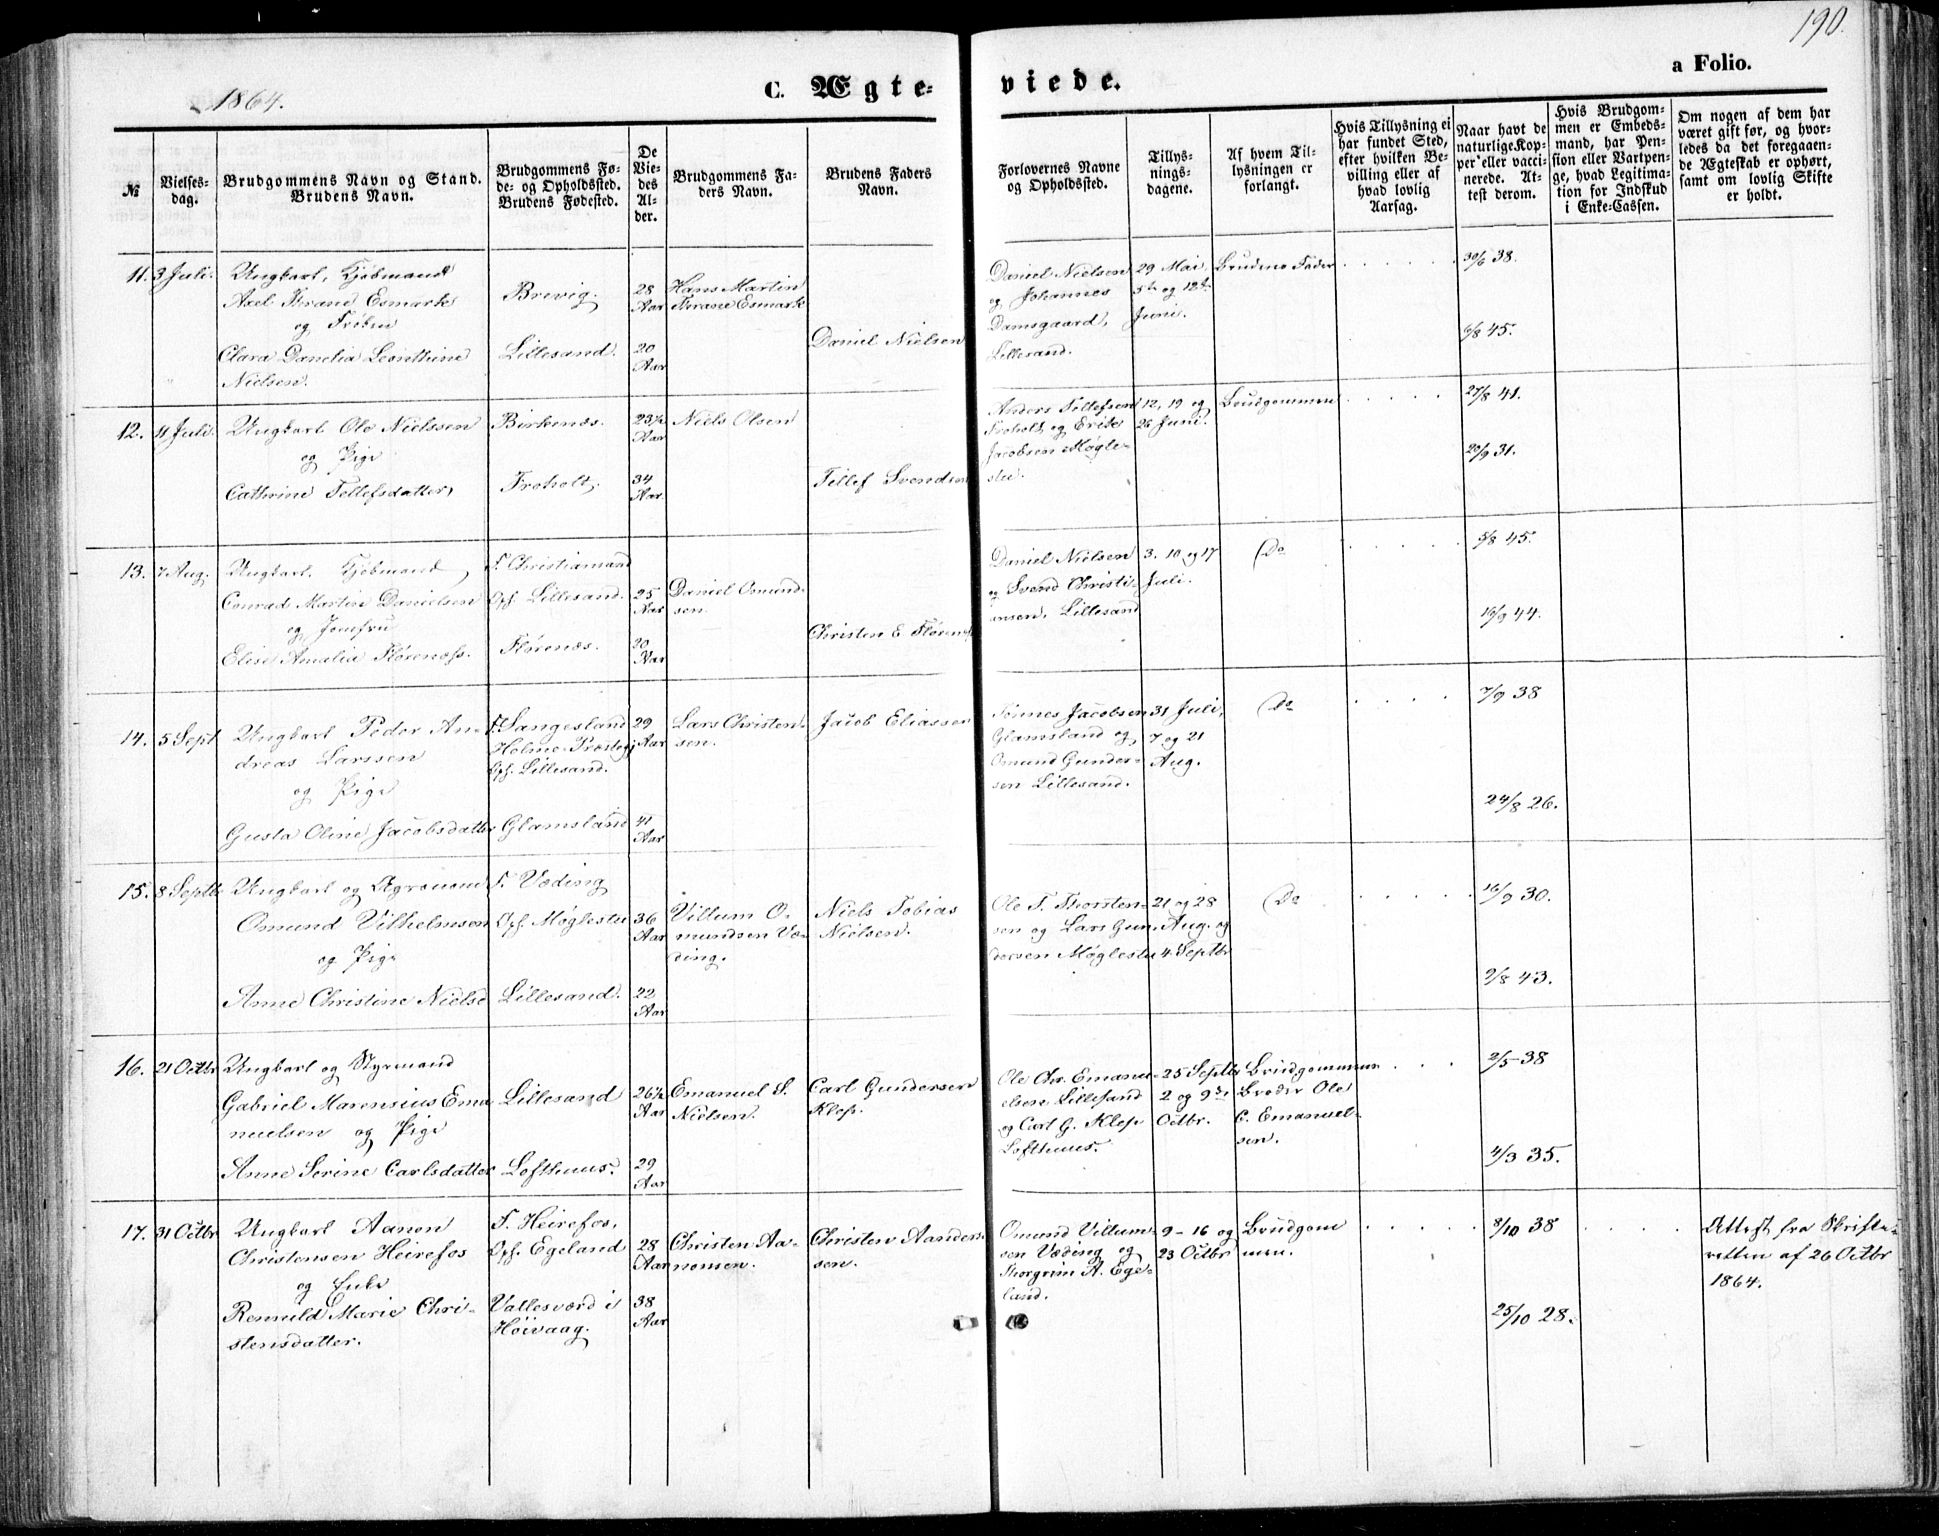 190.
1864.
C. Ægte-
viede.
a Folio.
№
Vielses-
dag.
Brudgommens Navn og Stand.
Brudens Navn.
Brudgommens Fø-
de- og Opholdssted.
Brudens Fødested.
De
Vie-
des
Al-
der.
Brudgommens Fa-
ders Navn.
Brudens Faders
Navn.
Forlovernes Navne
og Opholdssted.
Tillys-
nings-
dagene.
Af hvem Til-
lysningen er
forlangt.
Hvis Tillysning ei
har fundet Sted,
efter hvilken Be-
villing eller af
hvad lovlig
Aarsag.
Naar havt de
naturlige Kop-
per eller vacci-
nerede. At-
test derom.
Hvis Brudgom-
men er Embeds-
mand, har Pen-
sion eller Vartpen-
ge, hvad Legitima-
tion for Indskud
i Enke-Cassen.
Om nogen af dem har
været gift før, og hvor-
ledes da det foregaaen-
de Ægteskab er ophørt,
samt om lovlig Skifte
er holdt.
11.
3 Juli.
Ungkarl, Kjøbmand
Axel Thrane Esmark
og Frøken
Clara Danelia Leonthine
Nielsen.
Brevig.
Lillesand.
28
Aar
20
Aar
Hans Martin
Thrane Esmark
Daniel Nielsen
Daniel Nielsen
og Johannes
Damsgaard,
Lillesand.
29 Mai,
5te og 12te
Juni.
Brudens Fader
30/6 38.
6/8 45.
12.
11 Juli.
Ungkarl Ole Nielssen
og Pige
Cathrine Tellefsdatter
Birkenæs.
Froholt.
23½
Aar
34
Aar
Niels Olsen
Tellef Svendsen
Anders Tellefsen
Froholt og Erik
Jacobsen Møgle-
stu.
12, 19 og
26 Juni.
Brudgommen
27/8 41.
20/9 31.
13.
7 Aug.
Ungkarl, Kjøbmand
Conrad Martin Danielsen
og Jomfru
Elise Amalia Flørenæss.
F. Christiansand
Oph. Lillesand.
Flørenæs.
25
Aar
20
Aar
Daniel Osmund-
sen.
Christen E Flørenæs
Daniel Nielsen
og Svend Christi-
ansen, Lillesand
3. 10 og 17
Juli.
Do
5/8 45.
16/9 44.
14.
5 Sept
Ungkarl Peder An-
dreas Larssen
og Pige
Gusta Oline Jacobsdatter
F. Sangesland
Holme Præstegj
Oph. Lillesand.
Glamsland
29
Aar
41
Aar
Lars Christen-
sen.
Jacob Eliassen
Tønnes Jacobsen
Glamsland og
Omund Gunder-
sen Lillesand.
31 Juli,
7 og 21
Aug.
Do
7/9 38
24/8 26.
15.
8 Septbr
Ungkarl og Agronom
Omund Vilhelmsen
og Pige
Anne Christine Nielse
F. Væding
Oph. Møglestu
Lillesand.
36
Aar
22
Aar
Villum O-
mundsen Væ-
ding.
Niels Tobias
Nielsen.
Ole T. Thorsten-
sen og Lars Gun-
dersen Møglestu
21 og 28
Aug. og
4 Septbr
Do
16/9 30.
9/8 43.
16.
21 Octbr
Ungkarl og Styrmand
Gabriel Marensius Ema
nuelsen og Pige
Anne Serine Carlsdatter
Lillesand
Lofthuus.
26½
Aar
29
Aar
Emanuel S.
Nielsen.
Carl Gundersen
Klep.
Ole Chr. Emanu-
elsen Lillesand
og Carl G. Klep
Lofthuus.
25 Septbr
2 og 9de
Octbr.
Brudgommens
Broder Ole
C. Emanuel-
sen.
2/5 38
4/3 35.
17.
31 Octbr
Ungkarl Aanon
Christensen Heirefos
og Enke
Remuld Marie Chri-
stensdatter.
F. Heirefos,
Oph. Egeland
Vallesværd i
Höivaag.
28
Aar
38
Aar
Christen Aa-
nonsen.
Christen Aanders
sen.
Omund Villum-
sen Væding og
Thorgrim A. Ege-
land.
9 - 16 og
23 Octbr
Brudgom
men.
8/10 38
25/10 28.
Attest fra Skifte-
retten af 26 Octbr
1864.